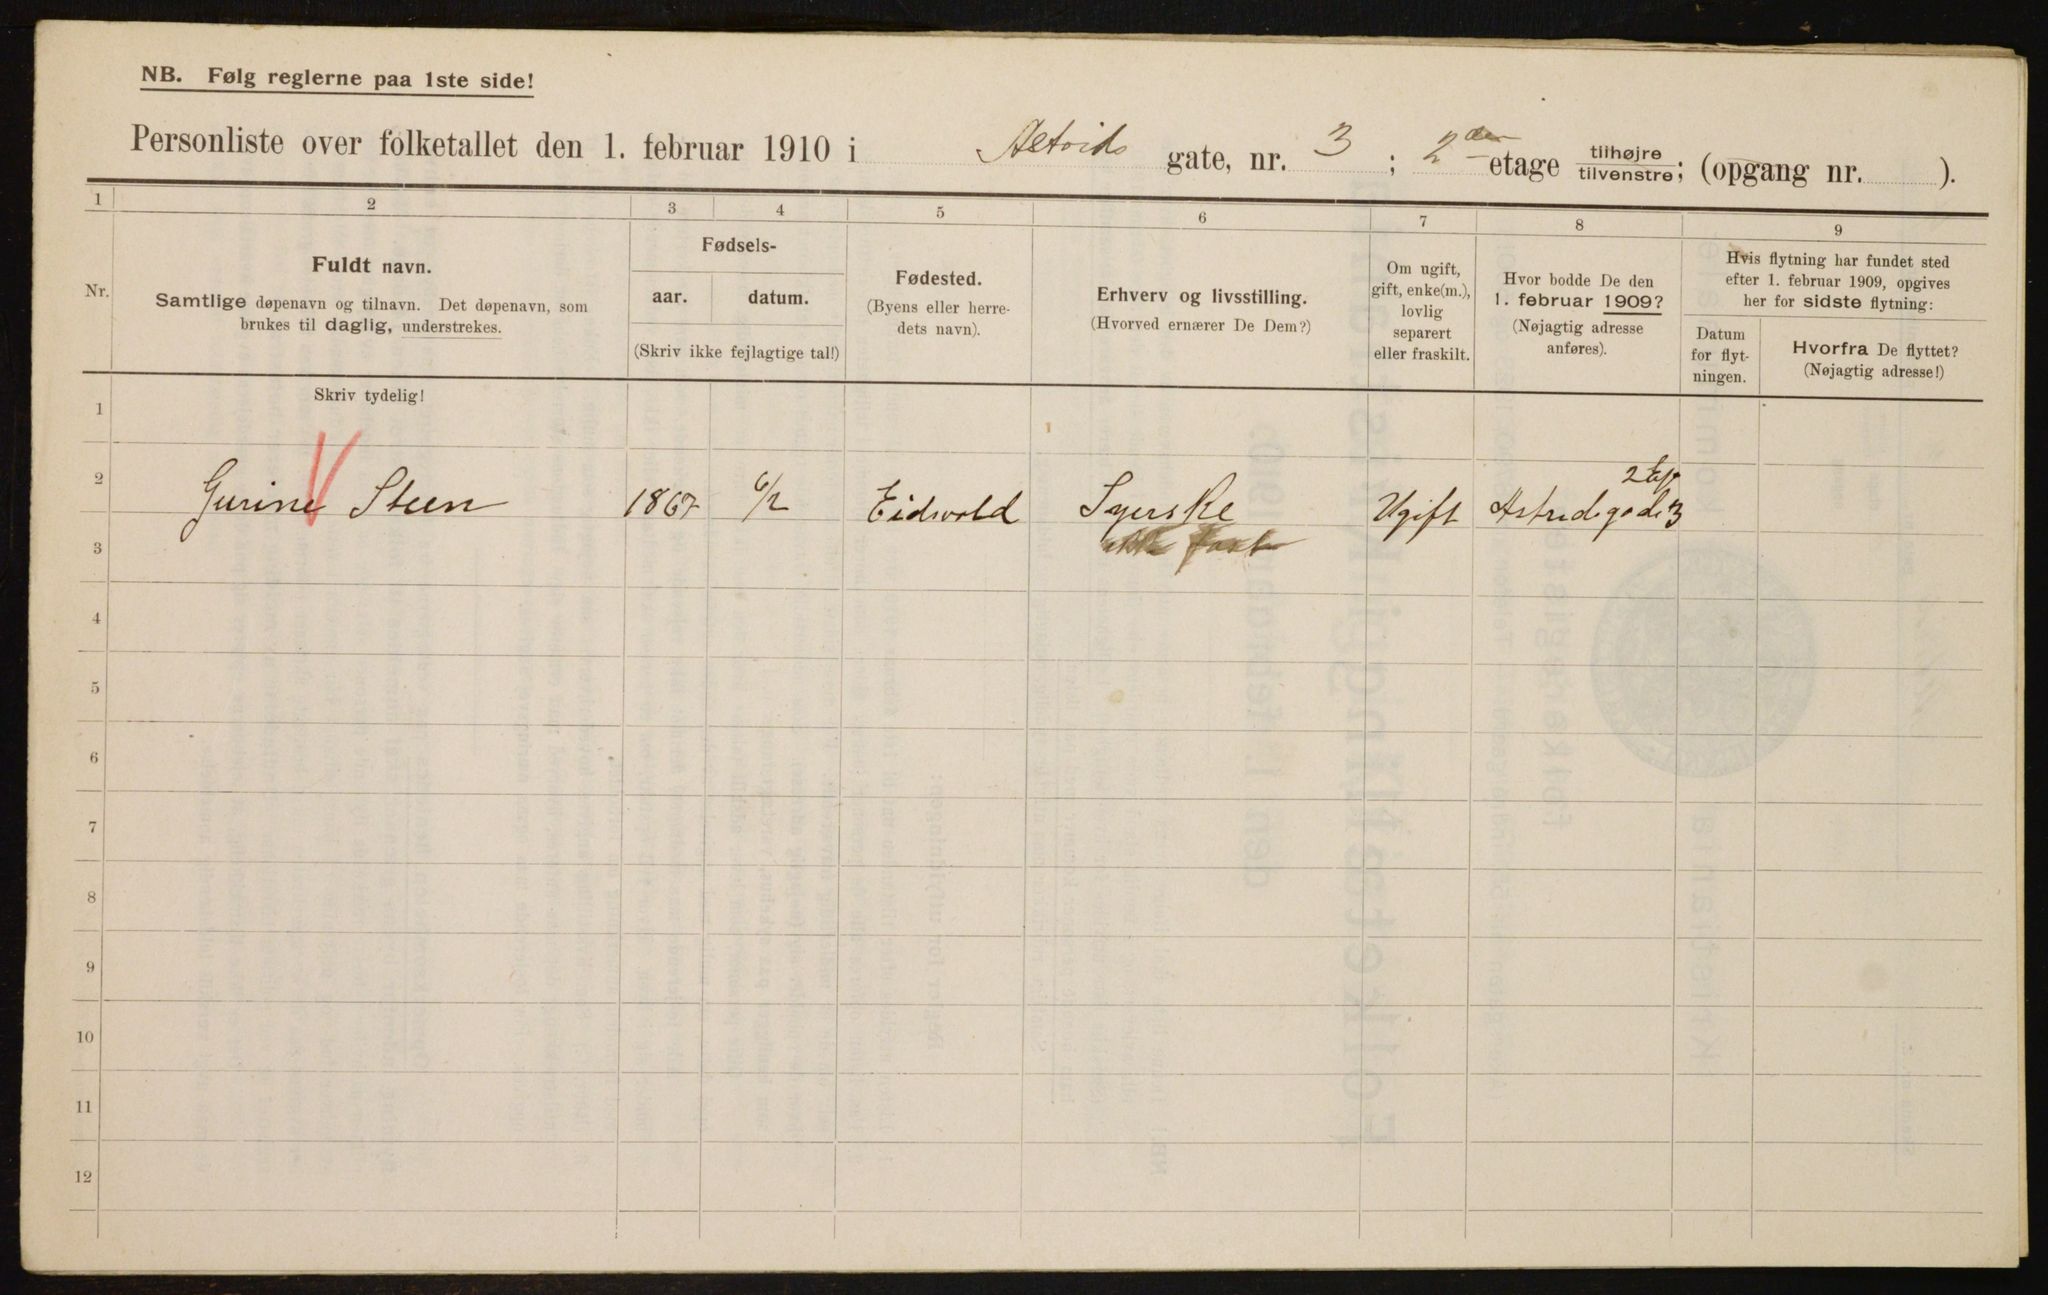 NB. Følg reglerne paa 1ste side!
Personliste over folketallet den 1. februar 1910 i Astrids gate, nr. 3 ; 2den etage tilhøjre tilvenstre; (opgang nr. ).
1 2 3 4 5 6 7 8 9
Nr.
Fuldt navn.
Samtlige døpenavn og tilnavn. Det døpenavn, som
brukes til daglig, understrekes.
Fødsels-
aar. datum.
(Skriv ikke fejlagtige tal!)
Fødested.
(Byens eller herre-
dets navn).
Erhverv og livsstilling.
(Hvorved ernærer De Dem?)
Om ugift,
gift, enke(m.),
lovlig
separert
eller fraskilt.
Hvor bodde De den
1. februar 1909?
(Nøjagtig adresse
anføres).
Hvis flytning har fundet sted
efter 1. februar 1909, opgives
her for sidste flytning:
Datum
for flyt-
ningen.
Hvorfra De flyttet?
(Nøjagtig adresse!)
Skriv tydelig!
1
2 Gurine Steen 1867 6/2 Eidsvold Syerske Ugift Astridsgade 3 2 Etg
3 ikke fast
4
5
6
7
8
9
10
11
12